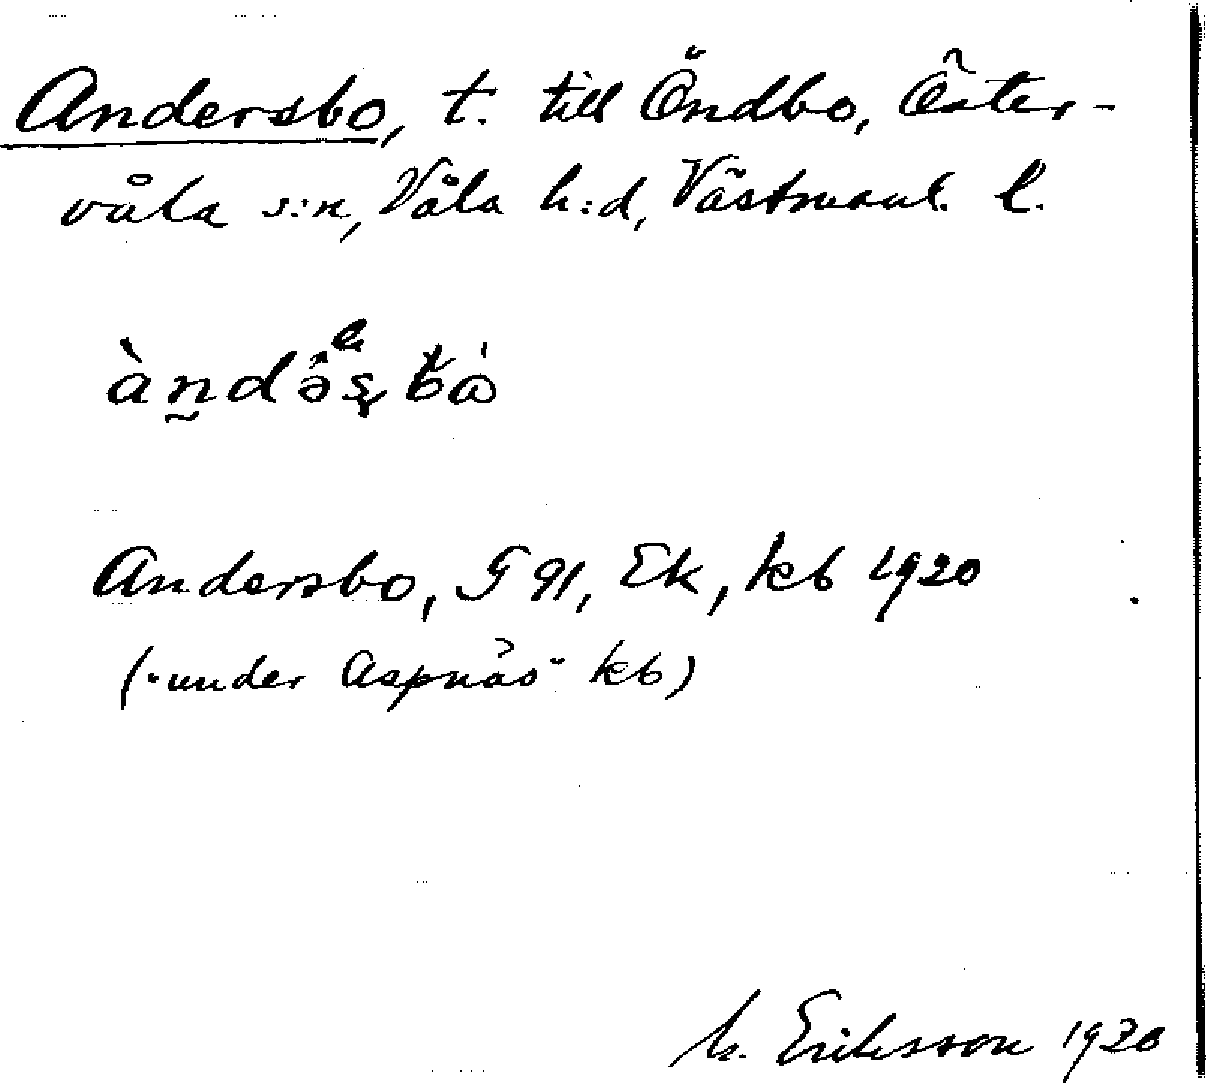 Andersbo, t. till Öndbo, Öster-
våla s:n, Våla h:d, Västmanl. l.
Andersbo, G 91, Ek, kb 1920
("under Aspnäs" kb)
M. Eriksson 1920